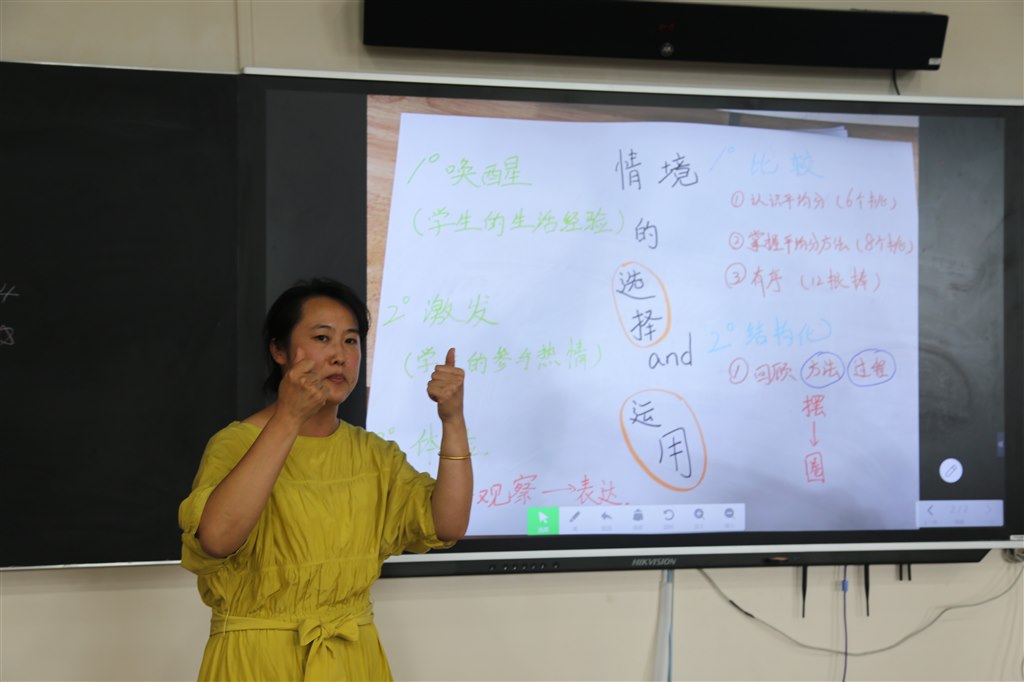 1° 唤醒
(学生的生活经验)
2° 激发
(学生的参与热情)
观察→表达.
情境
的
选择
and
运用
1° 比较
① 认识平均分(6个桃)
② 掌握平均分方法(8个桃)
③ 有序 (12根棒)
2° 结构化
① 回顾 方法 过程
摆
↓
圈
HIKVISION